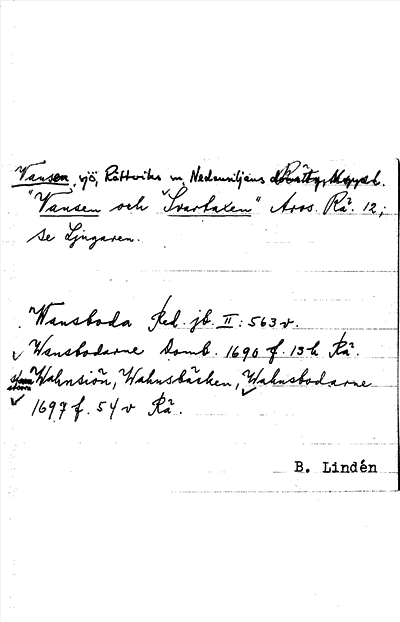 Vansen, sjö, Rättviks sn, Nedansiljans
"Vansen och "Svartaxen" Aros. Rä. 12;
se Ljugaren.
Wansboda Red. jb. II: 563 v.
Wansbodarne Domb. 1690 f. 13 h Rä.
Wahnsiön, Wahnsbäcken, Wahnsbodarne
1697 f. 54 v Rä.
B. Lindén